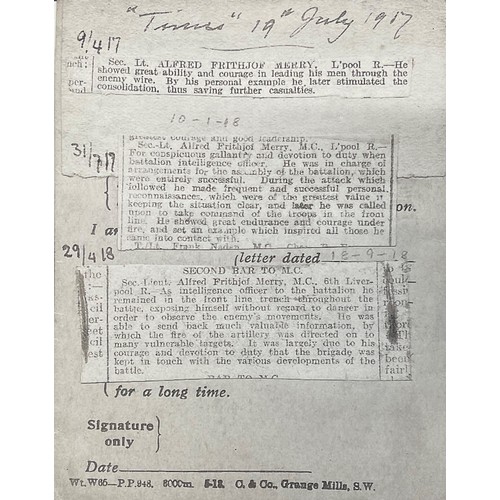 "Times" 19th July 1917
9/4/17
nch:
per-
and
Sec. Lt. ALFRED FRITHJOF MERRY, L'pool R.—He
showed great ability and courage in leading his men through the
enemy wire. By his personal example he later stimulated the
consolidation, thus saving further casualties.
10-1-18
greatest courage and good leadership.
31/7/17
Sec.-Lt. Alfred Frithjof Merry, M.C., L'pool R.—
For conspicuous gallantry and devotion to duty when
battalion intelligence officer. He was in charge of
arrangements for the assembly of the battalion, which
were entirely successful. During the attack which
followed he made frequent and successful personal
reconnaissances, which were of the greatest value in
keeping the situation clear, and later he was called
upon to take command of the troops in the front
line. He showed great endurance and courage under
fire, and set an example which inspired all those he
came into contact with.
T/Lt. Frank Naden, M.C.
on.
I a
(letter dated 18-9-18
29/4/18
the
as-
cil
er-
eet
cil
est
SECOND BAR TO M.C.
Sec. Lieut. Alfred Frithjof Merry, M.C., 6th Liver-
pool R. As intelligence officer to the battalion he
remained in the front line trench throughout the
battle, exposing himself without regard to danger in
order to observe the enemy's movements. He was
able to send back much valuable information, by
which the fire of the artillery was directed on to
many vulnerable targets. It was largely due to his
courage and devotion to duty that the brigade was
kept in touch with the various developments of the
battle.
BAR TO M.C.
take
been
fair
for a long time.
Signature
only
Date
Wt. W65—P.P.948. 8000m. 5-18. C. & Co., Grange Mills, S.W.